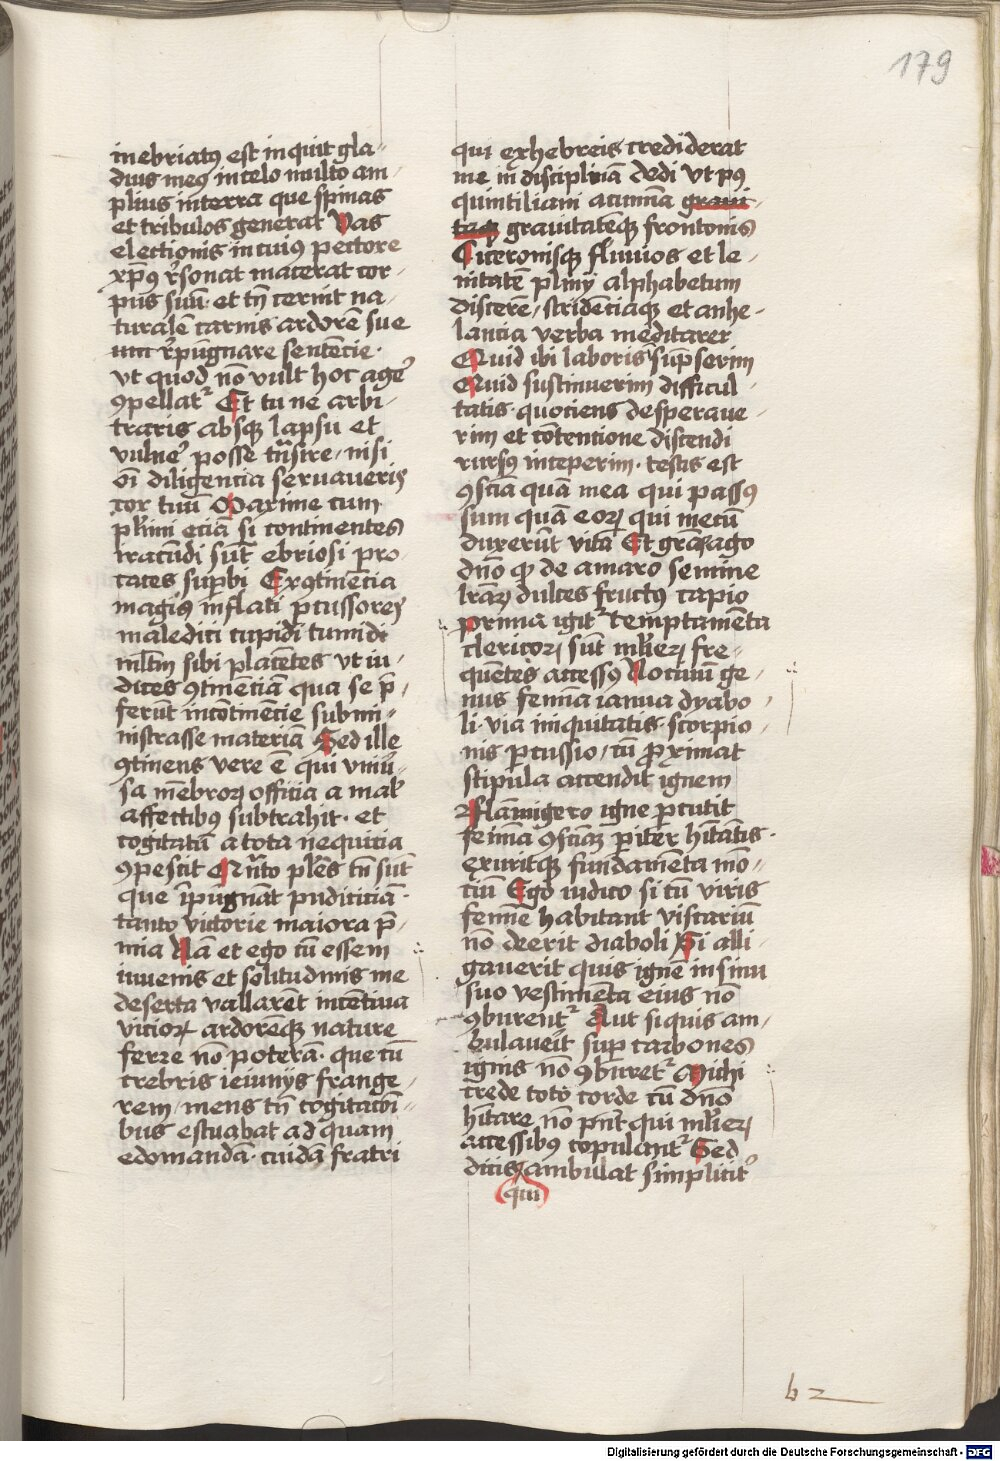 179
inebriatꝯ est inquit gla-
dius meꝯ in celo multo am-
plius in terra que spinas
et tribulos generat Vas
electionis in cuiꝯ pectore
xp̄ꝯ r̄sonat macerat cor-
pus suū· et tn̄ cernit na-
turalē carnis ardorē sue
um r̄pūgnare sentēcie·
vt quod nō vult hoc agē
ꝯpellatᷣ Et tu ne arbi-
traris absqꝫ lapsu et
vulnē posse tn̄sire / nisi
oī diligencia servaueris
cor tuū Maxime cum
plīmi eciā si continentes
iracūdi sūt ebriosi pro-
caces supbi Ex ꝯtinēcia
magis inflati pcussores
maledici cupidi tumidi
mltm̄ sibi placētes vt iu-
dices ꝯtinēciā qua se p̄-
ferūt incōtinēcie submi-
nistrasse materiā Sed ille
ꝯtinens vere ē qui vniū-
sa mēbroꝝ officia a malᷣ
affectibꝯ subtrahit· et
cogitatū a tota nequicia
ꝯpescit Qn̄to plēs tn̄ sūt
que īpugnāt pudiciciā·
tanto victorie maiora p̄-
mia Nā et ego cū essem
iuuenis et solitudinis me
deserta vallaret incētiua
vicioꝝ ardorēqꝫ nature
ferre nō poterā· que cū
crebris ieiunijs frange-
rem / mens tn̄ cogitacōi-
bus estuabat ad quam
edomandā· cuidā fratri
qui ex hebreis crediderat
me in disciplinā dedi vt pꝯ
quintiliani acumīa graui-
tatqꝫ grauitatēqꝫ frontonis
Ciceronisqꝫ fluuios et le-
nitatē plinij alphabetum
discerē / stridēciaqꝫ et anhe-
lancia verba meditarer
Quid ibi laboris supserim
Quid sustinuerim difficul-
tatis· quociens desperaue-
rim et cōtentione discendi
rursꝯ inceperim· testis est
ꝯsciā quā mea qui passꝯ
sum quā eoꝝ qui mecū
duxerūt vitā Et grās ago
dn̄o qꝫ de amaro semine
lrāꝝ dulces fructꝯ capio
Prima igitᷣ temptamēta
clericoꝝ sūt mlieꝝ fre-
quētes accessꝯ Nociuū ge-
nus femīa ianua dyabo-
li· via iniquitatis· scorpio-
nis pcussio / cū proximat
stipula accendit ignem
Flāmigero igne pcutit
femīa ꝯsciaꝫ pīter hītātis·
exuritqꝫ fundamēta mō-
ciū Ego iudico si cū viris
femīe habitant viscariū
nō deerit diaboli Si alli-
gauerit quis ignē in sinu
suo vestimēta eius nō
ꝯburentᷣ Aut siquis am-
bulaueīt sup carbones
ignis nō ꝯburetᷣ Michi
crede toto corde cū dn̄o
hītare nō pn̄t qui mlieꝝ
accessibꝯ copulantᷣ Sed
dicis ambulat simplicitᷣ
qui
b 2
Digitalisierung gefördert durch die Deutsche Forschungsgemeinschaft - DFG